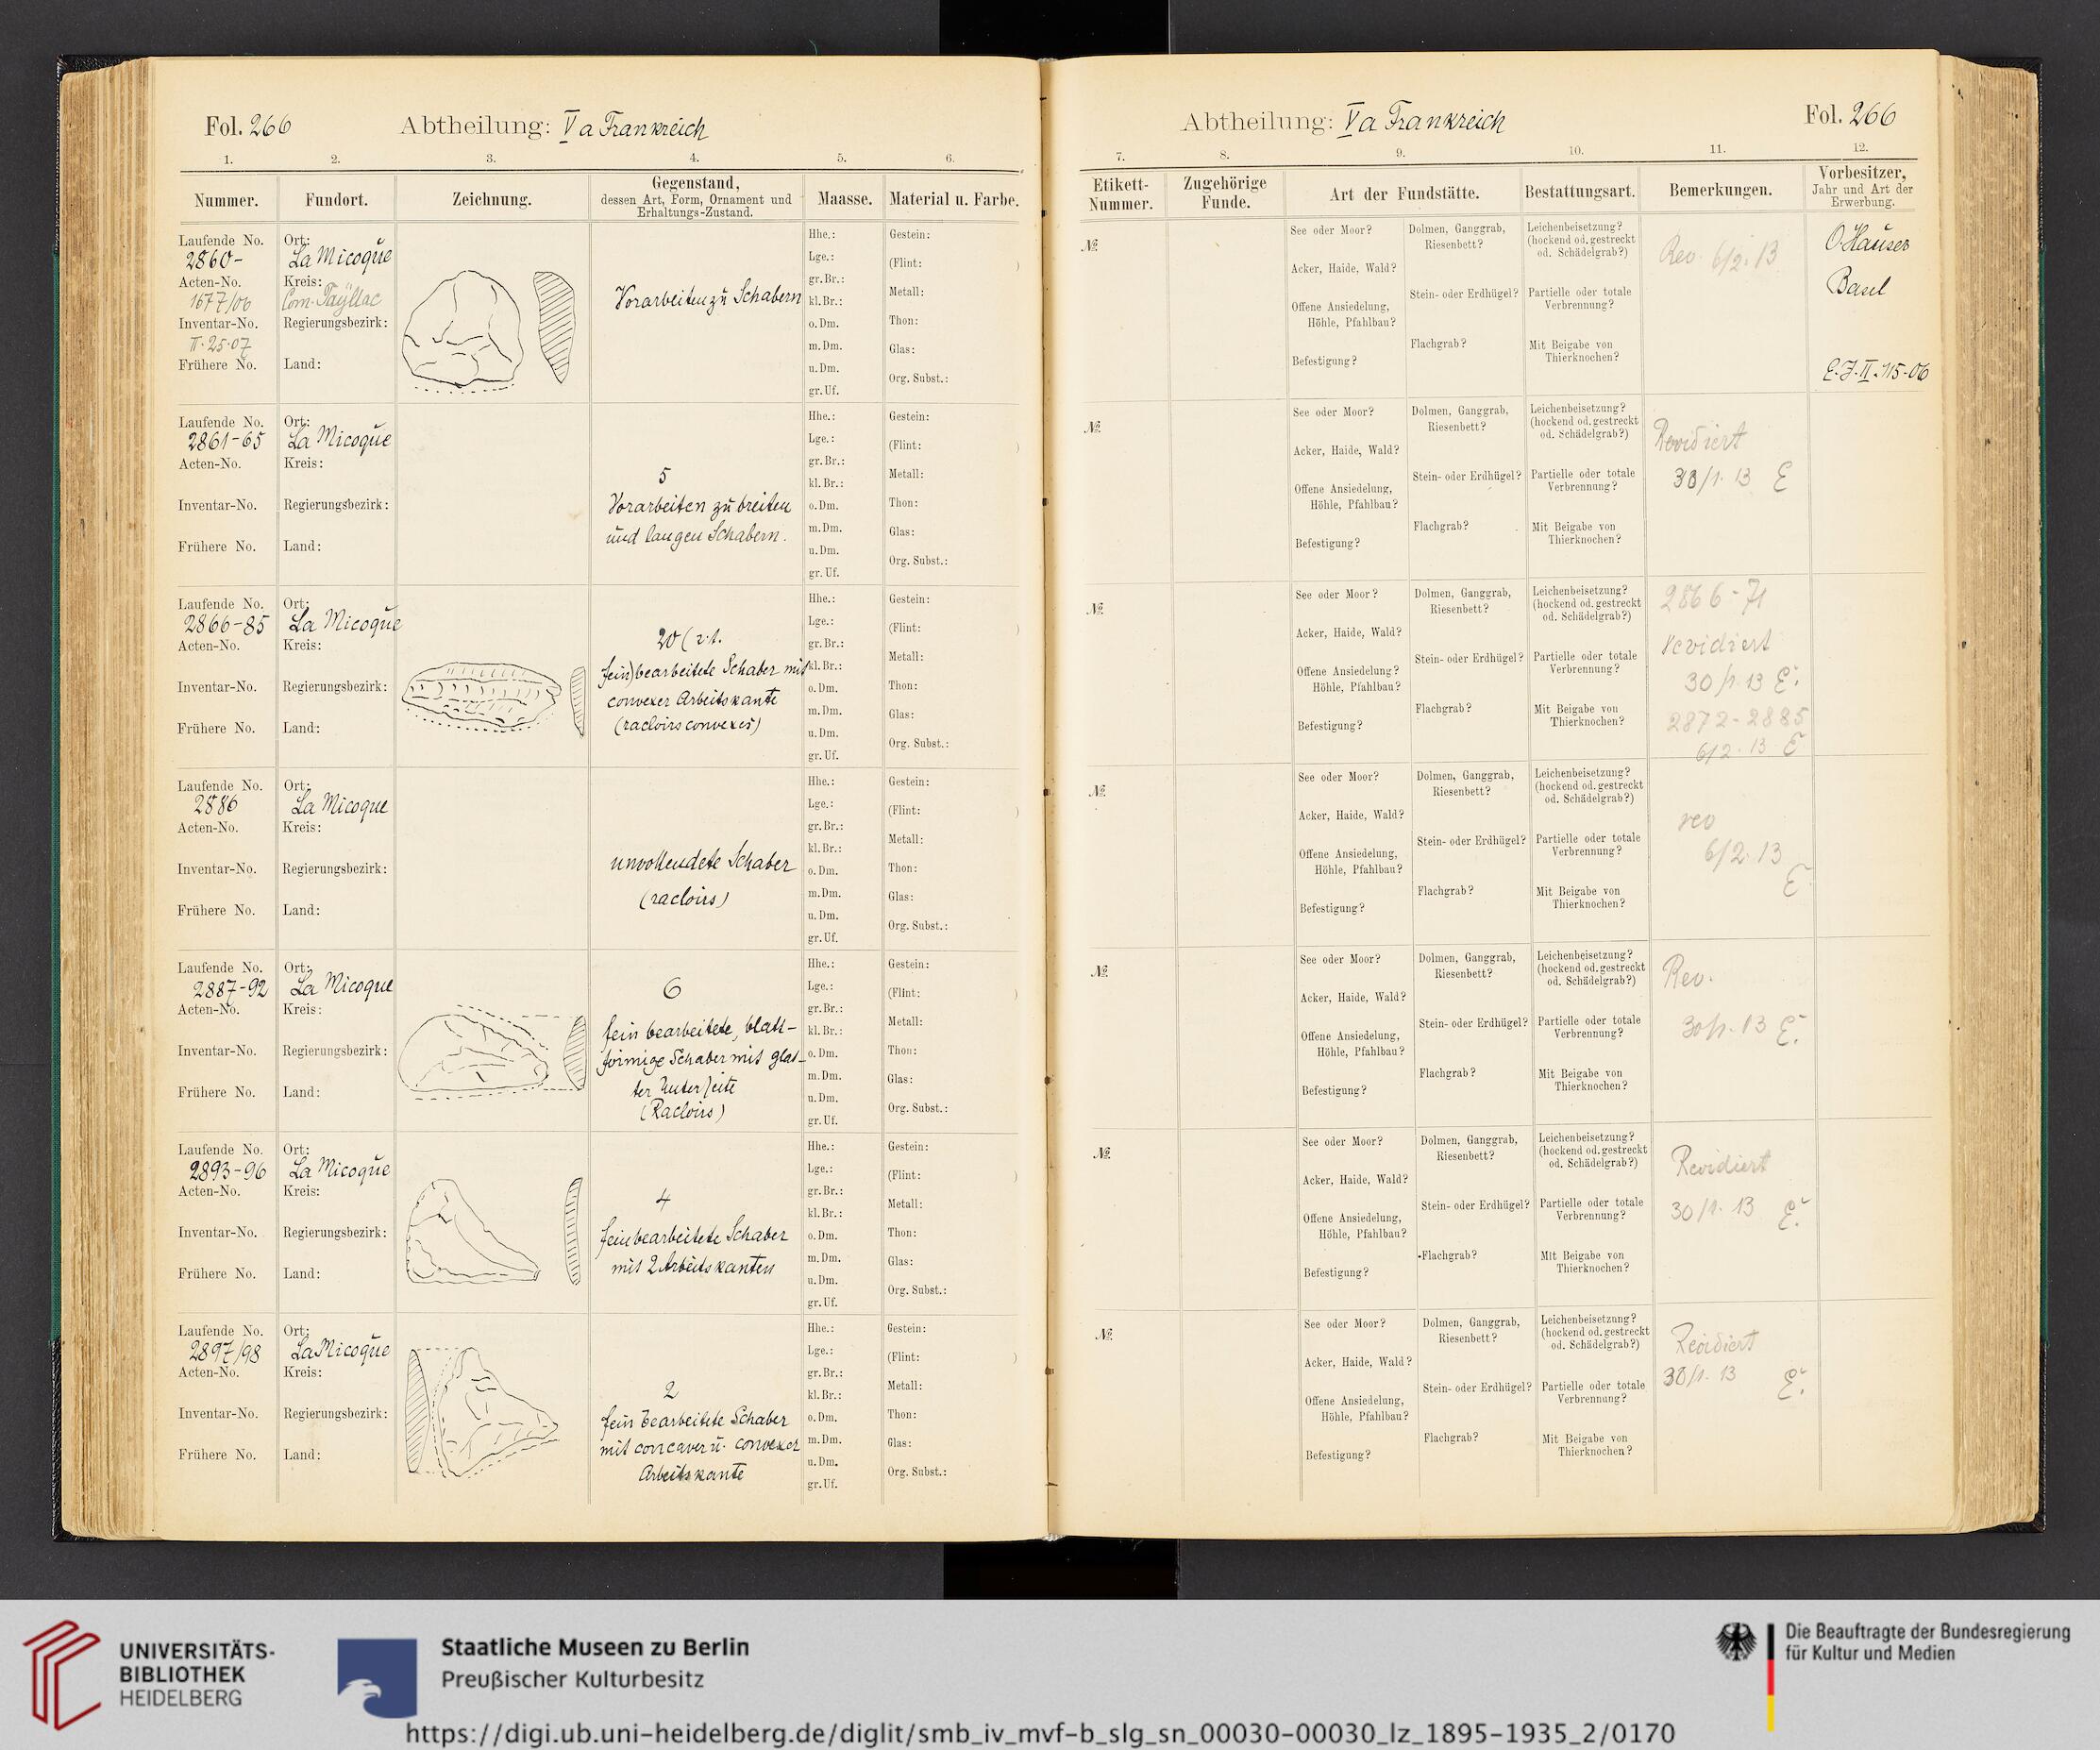 Fol. 266 Abtheilung: V a Frankreich
1. 2. 3. 4. 5. 6.
Nummer. Fundort. Zeichnung. Gegenstand, dessen Art, Form, Ornament und Erhaltungs-Zustand. Maasse. Material u. Farbe.
Laufende No. Ort: Hhe.: Gestein:
2860- La Micoque Lge.: (Flint: )
Acten-No. Kreis: gr. Br.:
1677/06 Com. Tayllac Vorarbeiten zu Schabern kl. Br.: Metall:
Inventar-No. Regierungsbezirk: o. Dm. Thon:
II. 25. 07 m. Dm. Glas:
Frühere No. Land: u. Dm.
gr. Uf. Org. Subst.:
Laufende No. Ort: Hhe.: Gestein:
2861-65 La Micoque Lge.: (Flint: )
Acten-No. Kreis: gr. Br.:
5 kl. Br.: Metall:
Inventar-No. Regierungsbezirk: Vorarbeiten zu breiten o. Dm. Thon:
und langen Schabern. m. Dm. Glas:
Frühere No. Land: u. Dm.
gr. Uf. Org. Subst.:
Laufende No. Ort: Hhe.: Gestein:
2866-85 La Micoque Lge.: (Flint: )
Acten-No. Kreis: 20 (z. t. gr. Br.:
fein) bearbeitete Schaber mit kl. Br.: Metall:
Inventar-No. Regierungsbezirk: convexer Arbeitskante o. Dm. Thon:
(racloirs convexes) m. Dm. Glas:
Frühere No. Land: u. Dm.
gr. Uf. Org. Subst.:
Laufende No. Ort: Hhe.: Gestein:
2886 La Micoque Lge.: (Flint: )
Acten-No. Kreis: gr. Br.:
unvollendete Schaber kl. Br.: Metall:
Inventar-No. Regierungsbezirk: o. Dm. Thon:
(racloirs) m. Dm. Glas:
Frühere No. Land: u. Dm.
gr. Uf. Org. Subst.:
Laufende No. Ort: Hhe.: Gestein:
2887-92 La Micoque 6 Lge.: (Flint: )
Acten-No. Kreis: gr. Br.:
fein bearbeitete, blatt- kl. Br.: Metall:
Inventar-No. Regierungsbezirk: förmige Schaber mit glat- o. Dm. Thon:
ter Unterseite m. Dm. Glas:
Frühere No. Land: (Racloirs) u. Dm.
gr. Uf. Org. Subst.:
Laufende No. Ort: Hhe.: Gestein:
2893-96 La Micoque Lge.: (Flint: )
Acten-No. Kreis: 4 gr. Br.:
kl. Br.: Metall:
Inventar-No. Regierungsbezirk: fein bearbeitete Schaber o. Dm. Thon:
mit 2 Arbeitskanten m. Dm. Glas:
Frühere No. Land: u. Dm.
gr. Uf. Org. Subst.:
Laufende No. Ort: Hhe.: Gestein:
2897/98 La Micoque Lge.: (Flint: )
Acten-No. Kreis: gr. Br.:
2 kl. Br.: Metall:
Inventar-No. Regierungsbezirk: fein bearbeitete Schaber o. Dm. Thon:
mit concaver u. convexer m. Dm. Glas:
Frühere No. Land: Arbeitskante u. Dm.
gr. Uf. Org. Subst.:
Abtheilung: V a Frankreich Fol. 266
7. 8. 9. 10. 11. 12.
Etikett-Nummer. Zugehörige Funde. Art der Fundstätte. Bestattungsart. Bemerkungen. Vorbesitzer, Jahr und Art der Erwerbung.
№ See oder Moor? Dolmen, Ganggrab, Riesenbett? Leichenbeisetzung? (hockend od. gestreckt od. Schädelgrab?) Rev. 6/2. 13 O Hauser
Acker, Haide, Wald? Basel
Offene Ansiedelung, Höhle, Pfahlbau? Stein- oder Erdhügel? Partielle oder totale Verbrennung?
Befestigung? Flachgrab? Mit Beigabe von Thierknochen? E. J. II. 115-06
№ See oder Moor? Dolmen, Ganggrab, Riesenbett? Leichenbeisetzung? (hockend od. gestreckt od. Schädelgrab?) Revidiert
Acker, Haide, Wald? 30/1. 13 E
Offene Ansiedelung, Höhle, Pfahlbau? Stein- oder Erdhügel? Partielle oder totale Verbrennung?
Befestigung? Flachgrab? Mit Beigabe von Thierknochen?
№ See oder Moor? Dolmen, Ganggrab, Riesenbett? Leichenbeisetzung? (hockend od. gestreckt od. Schädelgrab?) 2866-71
Acker, Haide, Wald? revidiert
Offene Ansiedelung? Höhle, Pfahlbau? Stein- oder Erdhügel? Partielle oder totale Verbrennung? 30/1. 13 E.
Befestigung? Flachgrab? Mit Beigabe von Thierknochen? 2872-2885
6/2. 13 E
№ See oder Moor? Dolmen, Ganggrab, Riesenbett? Leichenbeisetzung? (hockend od. gestreckt od. Schädelgrab?)
Acker, Haide, Wald? rev
Offene Ansiedelung, Höhle, Pfahlbau? Stein- oder Erdhügel? Partielle oder totale Verbrennung? 6/2. 13
Befestigung? Flachgrab? Mit Beigabe von Thierknochen? E.
№ See oder Moor? Dolmen, Ganggrab, Riesenbett? Leichenbeisetzung? (hockend od. gestreckt od. Schädelgrab?) Rev.
Acker, Haide, Wald?
Offene Ansiedelung, Höhle, Pfahlbau? Stein- oder Erdhügel? Partielle oder totale Verbrennung? 30/1. 13 E.
Befestigung? Flachgrab? Mit Beigabe von Thierknochen?
№ See oder Moor? Dolmen, Ganggrab, Riesenbett? Leichenbeisetzung? (hockend od. gestreckt od. Schädelgrab?) Revidiert
Acker, Haide, Wald?
Offene Ansiedelung, Höhle, Pfahlbau? Stein- oder Erdhügel? Partielle oder totale Verbrennung? 30/1. 13 E.
Befestigung? Flachgrab? Mit Beigabe von Thierknochen?
№ See oder Moor? Dolmen, Ganggrab, Riesenbett? Leichenbeisetzung? (hockend od. gestreckt od. Schädelgrab?) Revidiert
Acker, Haide, Wald? 30/1. 13 E.
Offene Ansiedelung, Höhle, Pfahlbau? Stein- oder Erdhügel? Partielle oder totale Verbrennung?
Befestigung? Flachgrab? Mit Beigabe von Thierknochen?
UNIVERSITÄTS-
BIBLIOTHEK
HEIDELBERG
Staatliche Museen zu Berlin
Preußischer Kulturbesitz
Die Beauftragte der Bundesregierung
für Kultur und Medien
https://digi.ub.uni-heidelberg.de/diglit/smb_iv_mvf-b_slg_sn_00030-00030_lz_1895-1935_2/0170